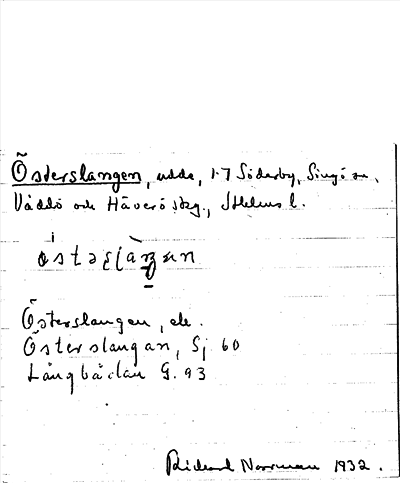 Österslangen, udde, 1-7 Söderby, Singö sn,
Väddö och Häverö skg., Sthlms l.
Österslangen, ek.
Österslangan, Sj 60
Långbådan G. 93
Rickard Norrman 1932.